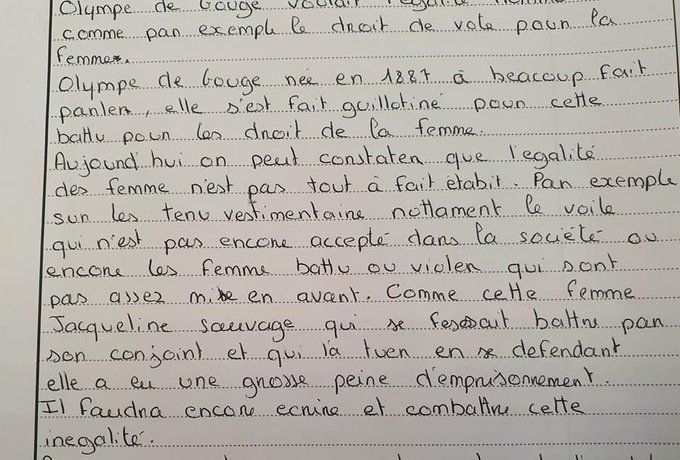 Olympe de Gouge voulait l'egalité
comme par exemple le droit de vote pour la
femme.
Olympe de Gouge née en 1887 à beacoup fait
parler, elle s'est fait guillotiné pour cette
battu pour les droit de la femme.
Aujourd'hui on peut constater que l'egalité
des femme n'est pas tout à fait etabit. Par exemple
sur les tenu vestimentaine nottament le voile
qui n'est pas encore accepté dans la société ou
encore les femme battu ou violer qui sont
pas assez mise en avant. Comme cette femme
Jacqueline sauvage qui se fesait battre par
son conjoint et qui l'a tuer en se defendant
elle a eu une grosse peine d'emprisonnement.
Il faudra encore ecrire et combattre cette
inegalité.